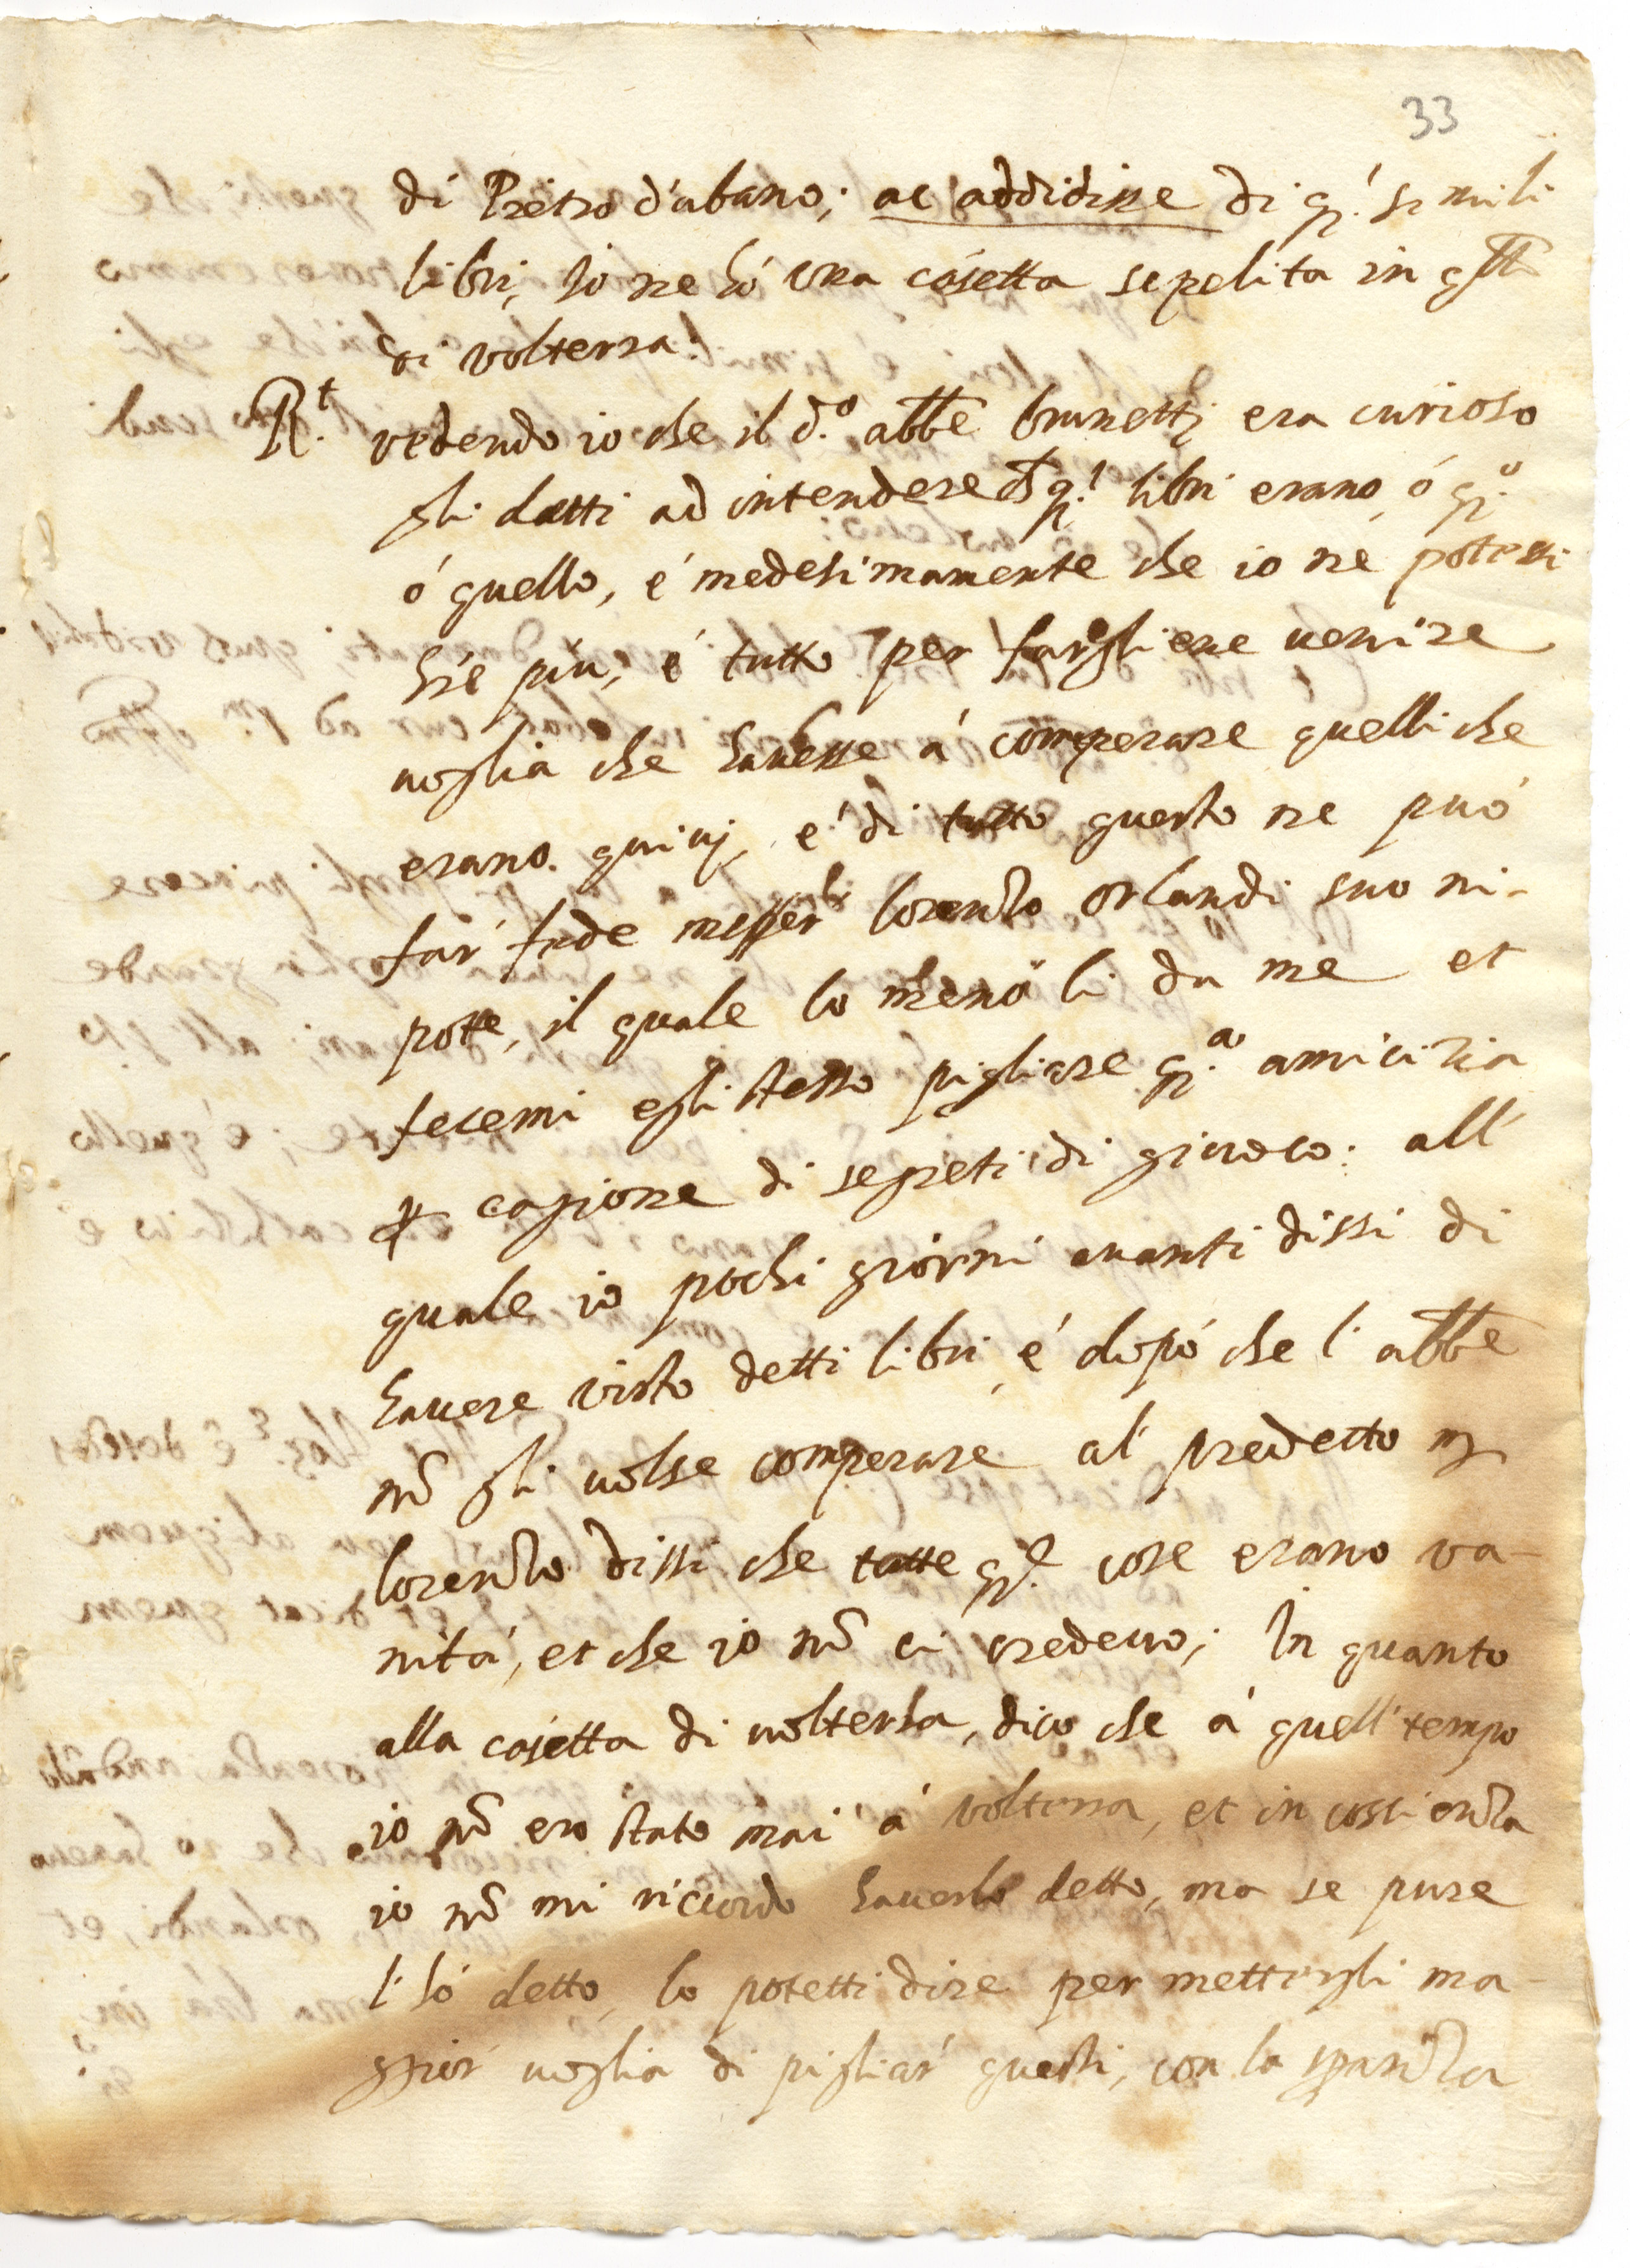 33
di Pietro d'abano; ac addidisse di q.i simili
libri, Io ne hó una casetta sepelita in
di volterra:
R.t vedendo io che il d.o abbe brunettj era curioso
gli detti ad intendere q.i libri erano, ó q.o
ó quello, é medesimamente che io ne potessi
più, é tutto per fargliene uenire
uoglia che hauesse á comperare quelli che
erano quiuj, é di tutto questo ne può
far' fede messer lorenzo orlandi suo ni-
pote, il quale lo menò li da me et
fecemi egli stesso pigliare q.a amicitia
cagione di segreti di giuoco: all'
quale io pochi giorni auanti dissi di
hauere visto detti libri, é dopò che l'abbe
nõ gli uolse comperare al' predetto m
lorenzo dissi che tutte q.e cose erano va-
nità, et che io nõ ci credeuo; In quanto
alla casetta di uolterra, dico che á quell' tempo
io nõ ero stato mai á volterra, et in conscienza
io nõ mi ricordo hauerlo detto, ma se pure
l'hó detto, lo potetti dire per mettergli ma-
ggior' uoglia di pigliar' questi, con la speranza